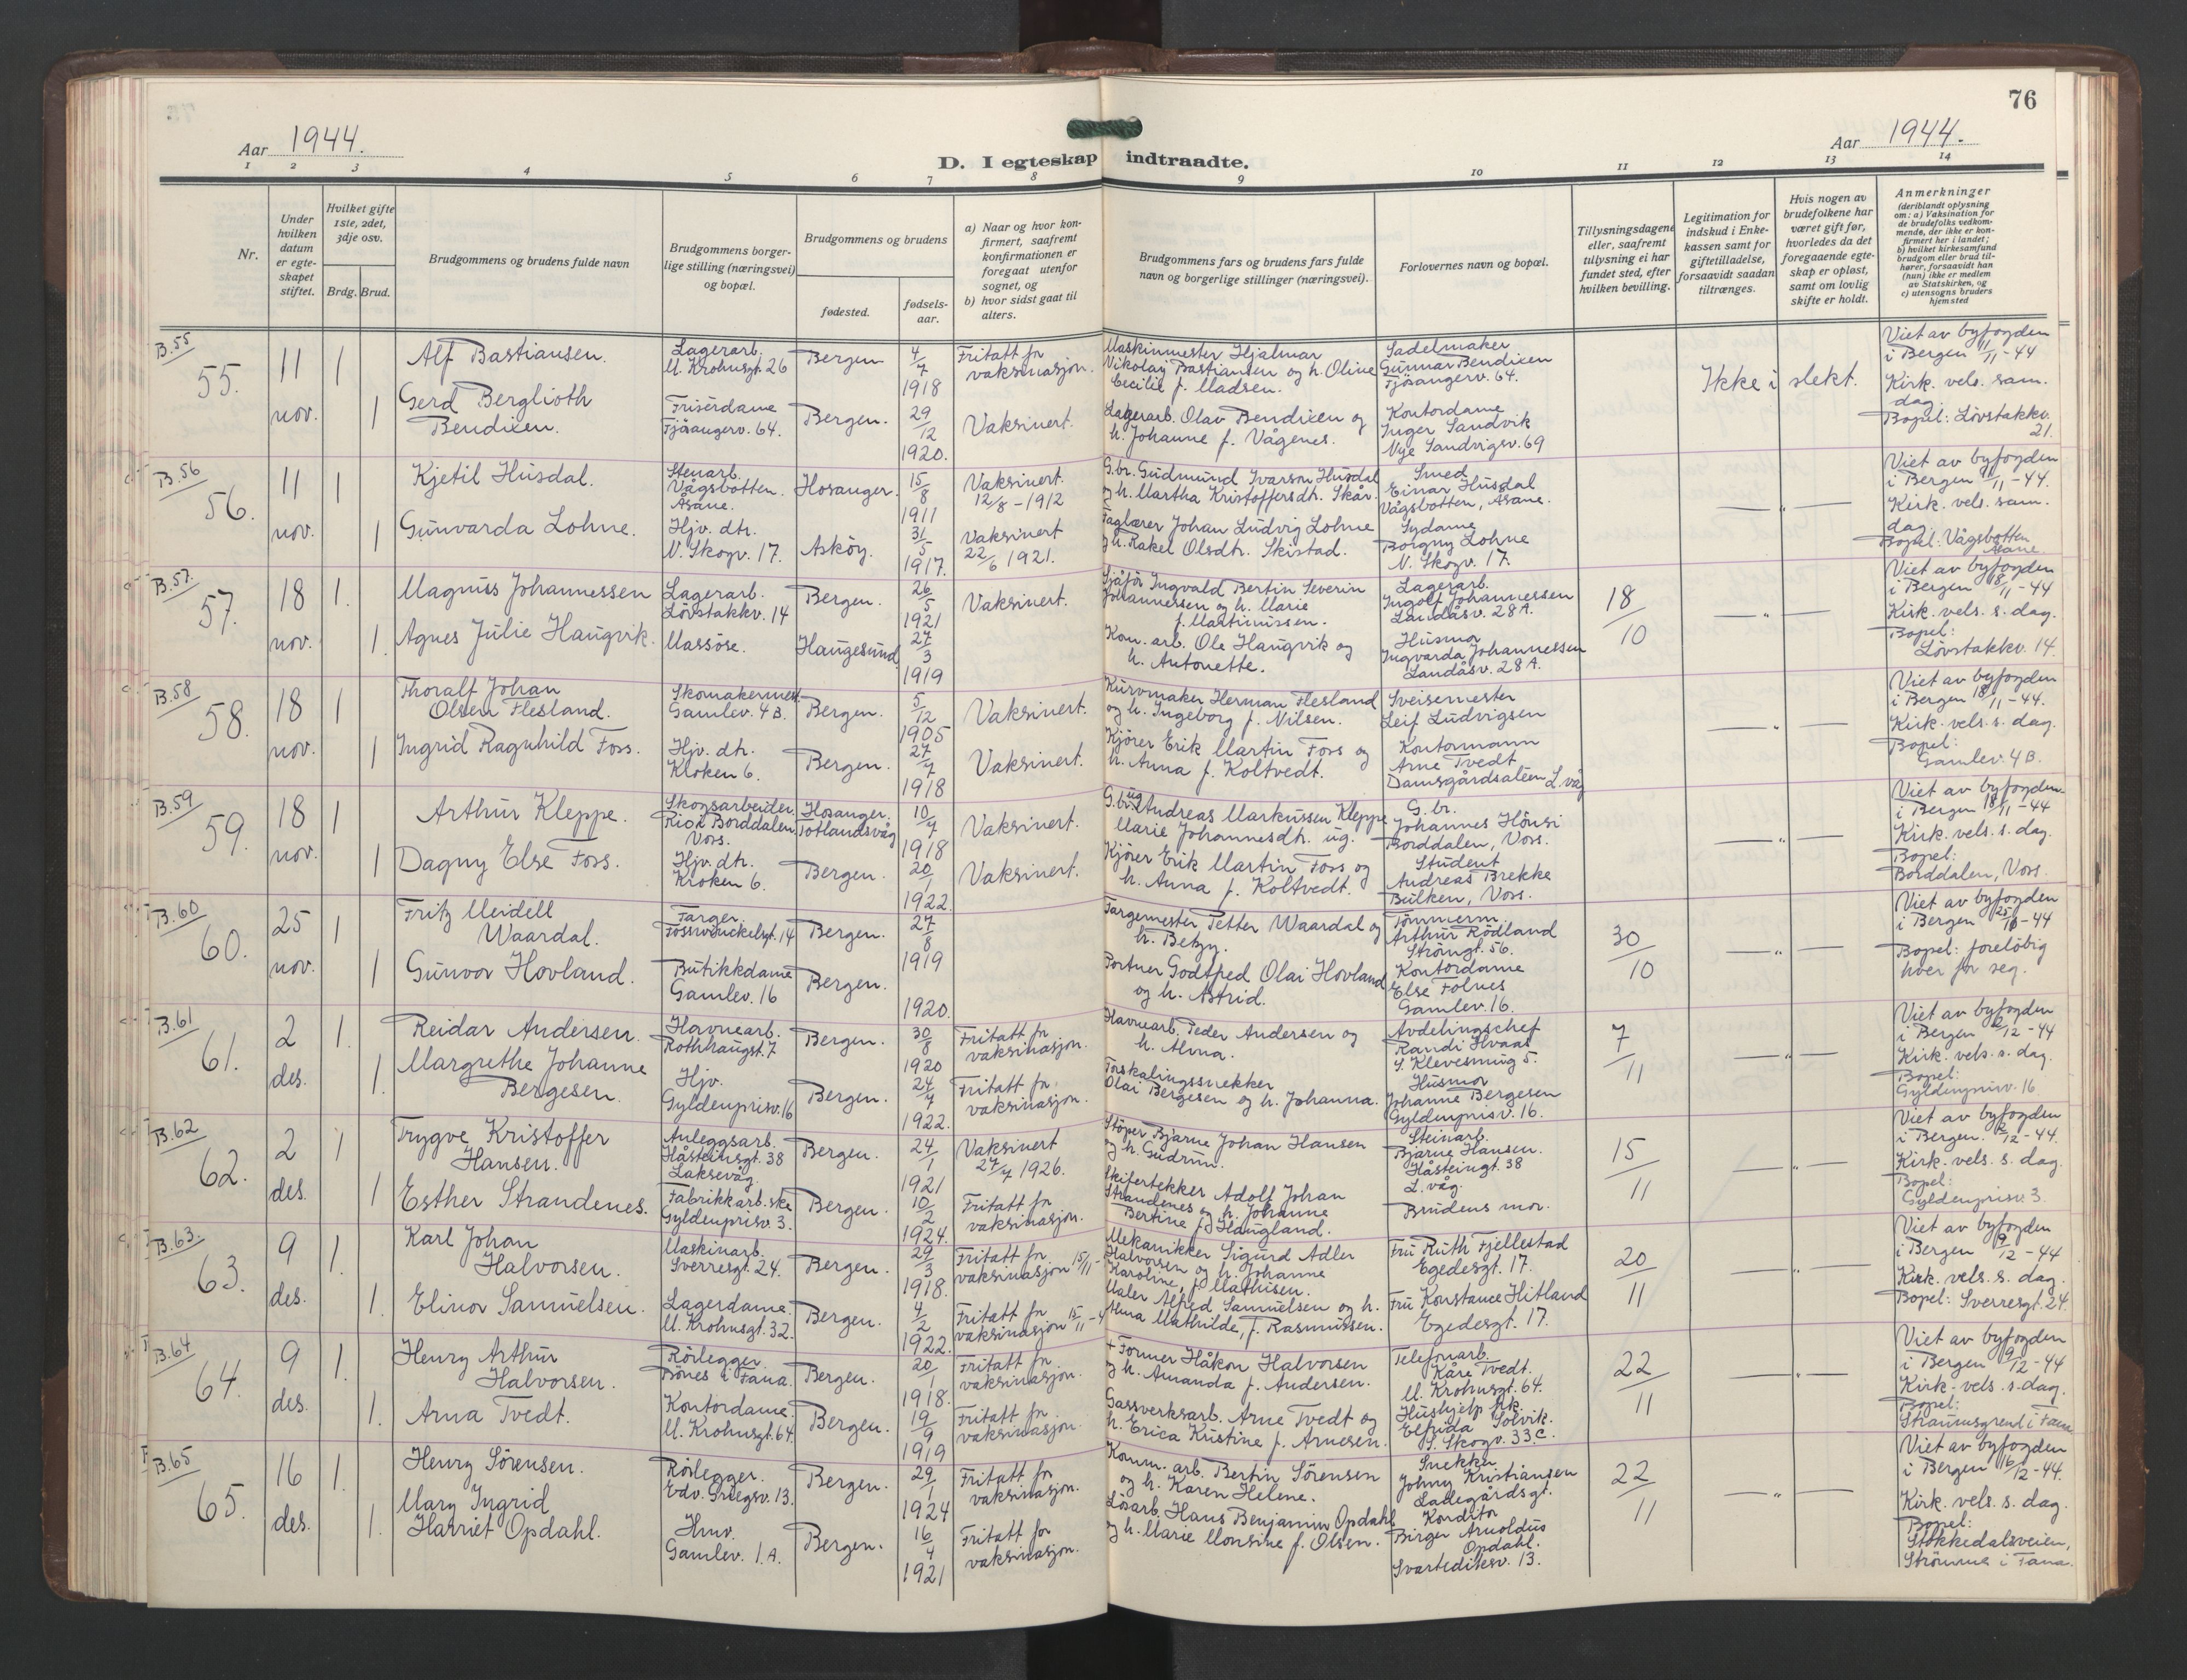 76
Aar 1944.
Aar 1944.
D. I egteskap indtraadte.
1 2 3 4 5 6 7 8 9 10 11 12 13 14
Nr.
Under hvilken datum er egte-skapet stiftet.
Hvilket gifte 1ste, 2det, 3dje osv.
Brdg. Brud.
Brudgommens og brudens fulde navn
Brudgommens borger-lige stilling (næringsvei) og bopæl.
Brudgommens og brudens
fødested.
fødsels-aar.
a) Naar og hvor kon-firmert, saafremt konfirmationen er foregaat utenfor sognet, og
b) hvor sidst gaat til alters.
Brudgommens fars og brudens fars fulde navn og borgerlige stillinger (næringsvei).
Forlovernes navn og bopæl.
Tillysningsdagene eller, saafremt tillysning ei har fundet sted, efter hvilken bevilling.
Legitimation for indskud i Enke-kassen samt for giftetilladelse, forsaavidt saadan tiltrænges.
Hvis nogen av brudefolkene har været gift før, hvorledes da det foregaaende egte-skap er opløst, samt om lovlig skifte er holdt.
Anmerkninger
(deriblandt oplysning om: a) Vaksination for de brudefolks vedkom-mende, der ikke er kon-firmert her i landet; b) hvilket kirkesamfund brudgom eller brud til-hører, forsaavidt han (hun) ikke er medlem av Statskirken, og c) utensogns bruders hjemsted
B.55
55. 11 nov. 1
Alf Bastiansen.
Lagerarb.
M. Krohnsgt. 26
Bergen
4/7 1918
Fritatt for vaksinasjon.
Maskinmester Hjalmar
Nikolay Bastiansen og h. Oline
Cecilie f. Madsen.
Sadelmaker
Gunnar Bendixen
Fjøsangerv. 64.
Ikke i slekt.
Viet av byfogden
i Bergen 11/11-44
Kirk. vels. sam.
dag.
Bopel: Lövstakkv.
21.
1
Gerd Berglioth
Bendixen.
Frisördame
Fjösangerv. 64.
Bergen.
29/12 1920.
Vaksinert.
Lagerarb. Olav Bendixen og
h. Johanne f. Vågenes.
Kontordame
Inger Sandvik
Nye Sandvigsv. 69
B.56
56. 11 nov. 1
Kjetil Husdal.
Stenarb.
Vågsbotten.
Åsane.
Hosanger.
15/8 1911
Vaksinert.
12/8-1912
G.br. Gudmund Ivarson Husdal
og h. Martha Kristoffersdtr. Skår.
Smed
Einar Husdal
Vågsbotten, Åsane.
— „ —
Viet av byfogden
i Bergen 11/11-44.
Kirk. vels. sam.
dag.
Bopel: Vågsbotten
Åsane.
1
Gunvarda Lohne.
Hjv. dtr.
N. Skogv. 17.
Asköy.
31/5 1917.
Vaksinert
22/6 1921.
Faglærer Johan Ludvig Lohne
og h. Rakel Olsdtr. Skistad.
Sydame
Borgny Lohne
N. Skogv. 17.
B.57.
57. 18 nov. 1.
Magnus Johannessen
Lagerarb.
Lövstakkv. 14
Bergen.
26/5 1921
Vaksinert.
Sjåför Ingvald Bertin Severin
Johannessen og h. Marie
f. Martinussen.
Lagerarb.
Ingolf Johannessen
Landåsv. 28 A.
18/10
— „ —
Viet av byfogden
i Bergen 18/11-44
Kirk. vels. s. dag.
Bopel:
Lövstakkv. 14.
1.
Agnes Julie Haugvik.
Massöse.
Haugesund
27/3 1919
Kom. arb. Ole Haugvik og
h. Antonette.
Husmor
Ingvarda Johannessen
Landåsv. 28 A.
B.58
58. 18 nov. 1
Thoralf Johan
Olsen Flesland.
Skomakermest.
Gamlev. 4 B.
Bergen.
5/12 1905
Vaksinert.
Kurvmaker Herman Flesland
og h. Ingeborg f. Nilsen.
Sveisemester
Leif Ludvigsen
— „ —
Viet av byfogden
i Bergen 18/11-44.
Kirk. vels. s. dag.
Bopel:
Gamlev. 4 B.
1
Ingrid Ragnhild Foss.
Hjv. dtr.
Kroken 6.
Bergen.
27/7 1918
Vaksinert.
Kjörer Erik Martin Foss og
h. Anna f. Koltvedt.
Kontormann
Arne Tvedt
Damsgårdsalleen L.våg
B.59
59. 18 nov. 1
Arthur Kleppe.
Skogsarbeider
Borddalen
Voss.
Hosanger.
Totlandsvåg
10/7 1918
Vaksinert.
G.br. ug. Andreas Markussen Kleppe
Marie Johannesdtr. ug.
G.br.
Johannes Hönsi
Borddalen, Voss.
— „ —
Viet av byfogden
i Bergen 18/11-44
Kirk. vels. s. dag.
Bopel:
Borddalen, Voss.
1
Dagny Else Foss.
Hjv. dtr.
Kroken 6.
Bergen.
20/1 1922.
Vaksinert.
Kjörer Erik Martin Foss og
h. Anna f. Koltvedt.
Student
Andreas Brekke
Bulken, Voss.
B.60
60. 25 nov. 1
Fritz Meidell
Waardal.
Farger.
Fosswinckelsgt. 14
Bergen.
27/8 1919
Fargemester Petter Waardal og
h. Betzy.
Tömmerm.
Arthur Rödland
Strömgt. 56.
30/10
— „ —
Viet av byfogden
i Bergen 25/11-44
Bopel: foreløbig
hver for seg.
1
Gunvor Hovland.
Butikkdame
Gamlev. 16
Bergen.
1920.
Portner Godtfred Olai Hovland
og h. Astrid.
Kontordame
Else Folnes
Gamlev. 16.
B.61
61. 2 des. 1.
Reidar Andersen.
Havnearb.
Rothhaugst. 7
Bergen.
30/8 1920
Fritatt for vaksinasjon.
Havnearb. Peder Andersen og
h. Anna.
Avdelingschef
Randi Hvaas
S. Klevesmug 5.
7/11
— „ —
Viet av byfogden
i Bergen 2/12-44
Kirk. vels. s. dag.
Bopel:
Gyldenprisv. 16
1.
Margrethe Johanne
Bergesen.
Hjv.
Gyldenprisv. 16
Bergen.
24/7 1922.
Fritatt for vaksinasjon.
Forskalingssnekker
Olai Bergesen og h. Johanna.
Husmor
Johanne Bergesen
Gyldenprisv. 16.
B.62
62. 2 des. 1
Trygve Kristoffer
Hansen.
Anleggsarb.
Håsteinsgt. 38
Laksevåg.
Bergen.
24/1 1921
Vaksinert
27/7 1926.
Stöper Bjarne Johan Hansen
og h. Gudrun.
Steinarb.
Bjarne Hansen.
Håsteingt. 38
L.våg.
15/11
— „ —
Viet av byfogden
i Bergen. 2/12-44.
Kirk. vels. s. dag.
Bopel:
Gyldenprisv. 3.
1
Esther Strandenes.
Fabrikkarb.ske
Gyldenprisv. 3.
Bergen.
10/2 1924.
Fritatt for vaksinasjon.
Skifertekker Adolf Johan
Strandenes og h. Johanne
Bertine f. Haugland.
Brudens mor.
B.63.
63. 9 des. 1.
Karl Johan
Halvorsen.
Maskinarb.
Sverresgt. 24.
Bergen.
29/3 1918.
Fritatt for vaksinasjon 15/11-
Mekanikker Sigurd Adler
Halvorsen og h. Johanne
Karoline, f. Mathisen.
Fru Ruth Fjellestad
Egedesgt. 17.
20/11
— „ —
Viet av byfogden
i Bergen 9/12-44
Kirk. vels. s. dag.
Bopel: Sverresgt. 24.
1.
Elinor Samuelsen.
Lagerdame
M. Krohnsgt. 32.
Bergen.
4/2 1922.
Fritatt for vaksinasjon 15/11-4
Maler Alfred Samuelsen og h.
Alma Mathilde, f. Rasmussen.
Fru Konstance Hitland
Egedesgt. 17.
B.64
64. 9 des. 1.
Henry Arthur
Halvorsen.
Rörlegger.
Bönes i Fana.
Bergen.
20/1 1918.
Fritatt for vaksinasjon.
+ Former Håkon Halvorsen
og h. Amanda f. Andersen.
Telefonarb.
Kåre Tvedt.
M. Krohnsgt. 64.
22/11
— „ —
Viet av byfogden
i Bergen 9/12-44
Kirk. vels. s. dag.
Bopel:
Straumsgrend i Fana
1.
Arna Tvedt.
Kontordame.
M. Krohnsgt. 64.
Bergen.
19/9 1919
Fritatt for vaksinasjon.
Gassverksarb. Arne Tvedt og
h. Erica Kristine f. Arnesen.
Hushjelp frk.
Elfrida Solvik.
S. Skogv. 33 c.
B.65
65. 16 des. 1.
Henry Sörensen.
Rörlegger.
Edv. Griegsv. 13.
Bergen.
29/1 1924
Fritatt for vaksinasjon.
Komm. arb. Bertin Sörensen
og h. Karen Helene.
Snekker
Johny Kristiansen
Ladegårdsgt.
22/11
— „ —
Viet av byfogden
i Bergen 16/12-44.
Kirk. vels. s. dag.
Bopel:
Stokkedalsveien,
Strömme i Fana.
1.
Mary Ingrid
Harriet Opdahl.
Hmv.
Gamlev. 1.A.
Bergen.
16/4 1921
Fritatt for vaksinasjon.
Lösarb. Hans Benjamin Opdahl
og h. Marie Monsine f. Olsen.
Konditor
Birger Arnoldus
Opdahl.
Svartediksv. 13.